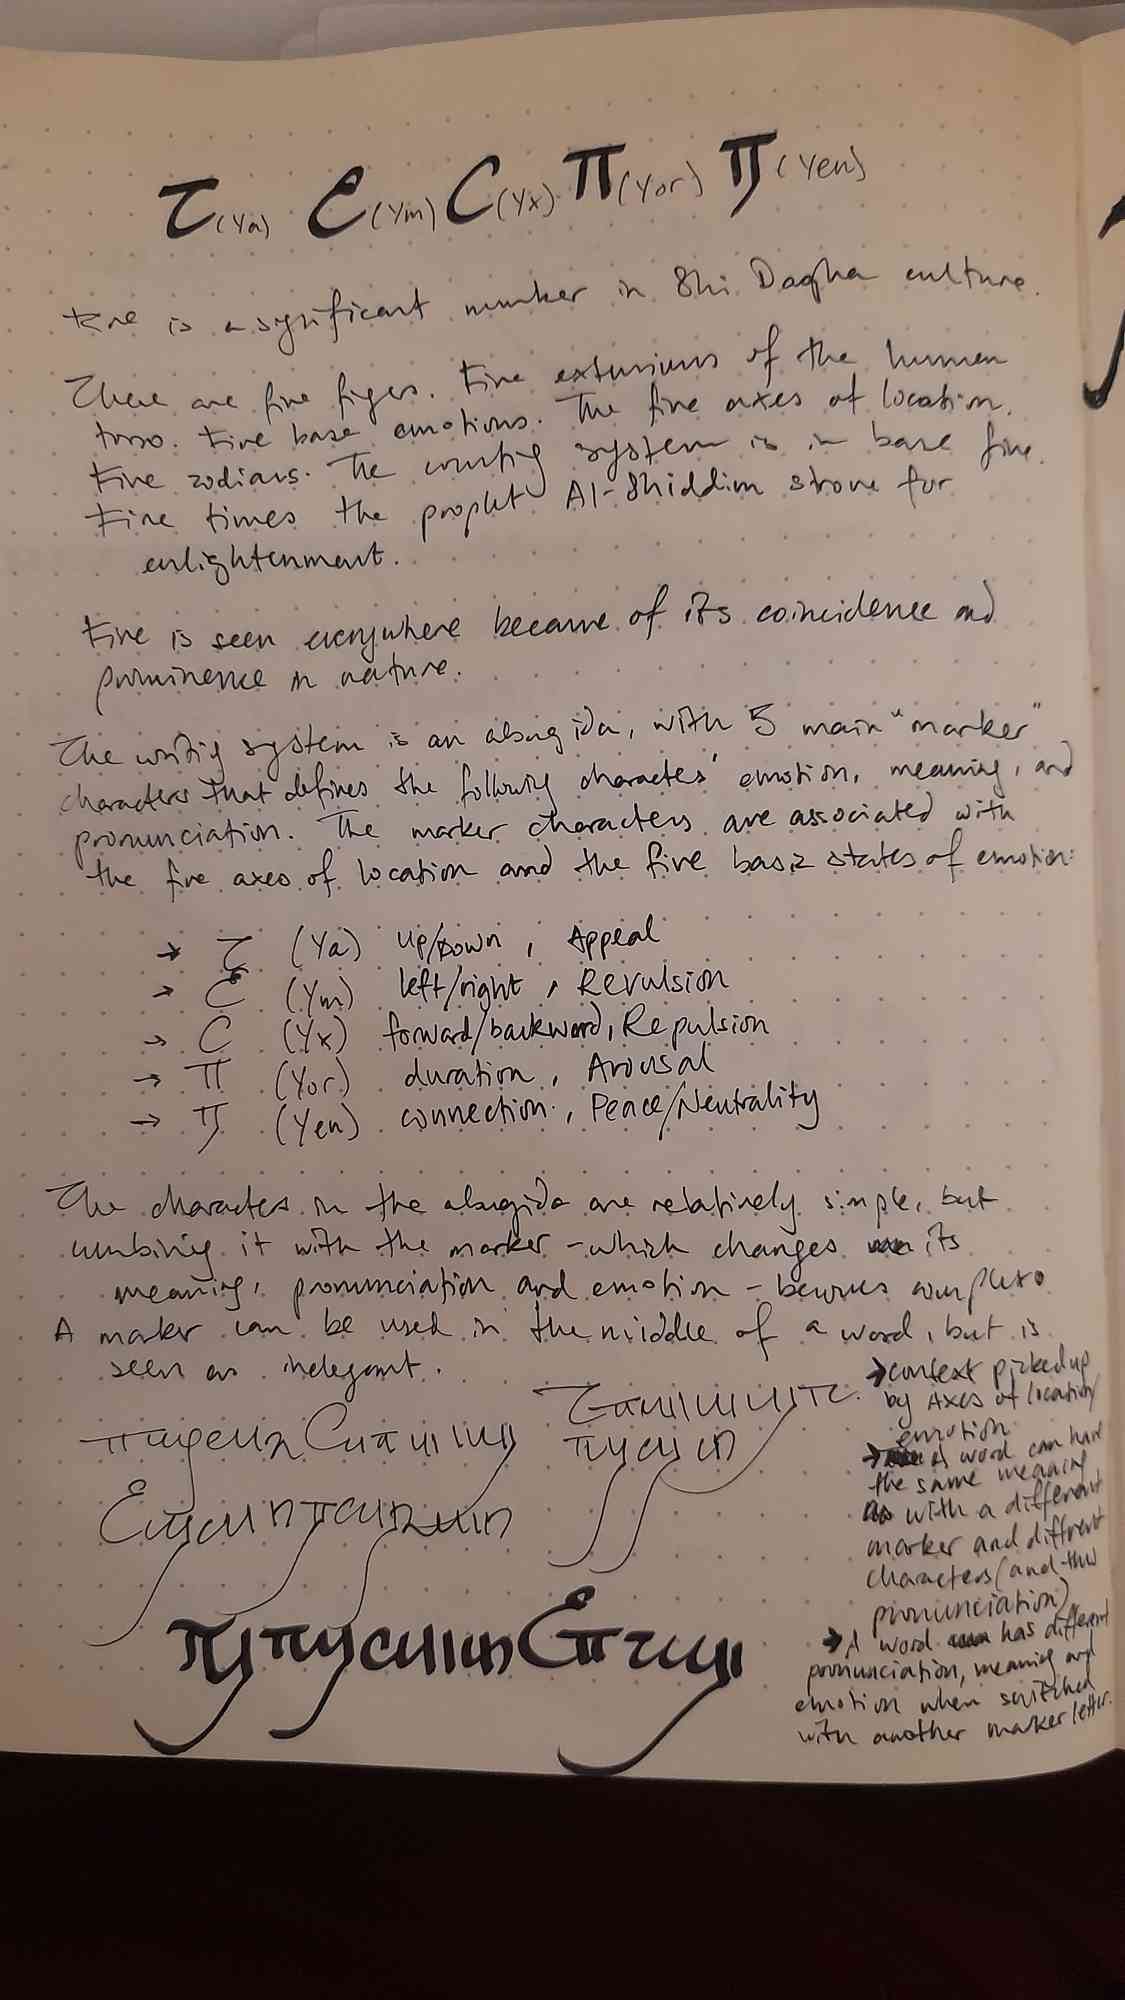 (Ya) (Ym) C (Yx) (Yor) (Yen)
Five is a significant number in Shi Daqha culture.
There are five figers. Five extensions of the human
torso. Five base emotions. The five axes of location.
Five zodiacs. The counting system is in base five.
Five times the prophet Al-Shiddim strove for
enlightenment.
Five is seen everywhere because of its coincidence and
prominence in nature.
The writing system is an abugida, with 5 main "marker"
characters that defines the following characters' emotion, meaning, and
pronunciation. The marker characters are associated with
the five axes of location and the five basic states of emotion:
→ τ (Ya) up/down, Appeal
→ (Ym) left/right, Revulsion
→ C (Yx) forward/backward, Repulsion
→ π (Yor) duration, Arousal
→ (Yen) connection, Peace/Neutrality
The characters in the abugida are relatively simple, but
combining it with the marker - which changes its
meaning, pronunciation and emotion - becomes complex.
A marker can be used in the middle of a word, but is
seen as inelegant.
→ context picked up
by Axes of location/
emotion
→ A word can have
the same meaning
with a different
marker and different
characters (and thus
pronunciation)
→ A word has different
pronunciation, meaning and
emotion when switched
with another marker letter.